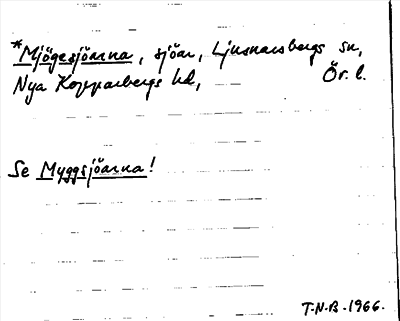 *Mjögesjöarna, sjöar, Ljusnarsbergs sn,
Nya Kopparbergs hd, Ör. l.
Se Myggsjöarna!
T.N.B. 1966.